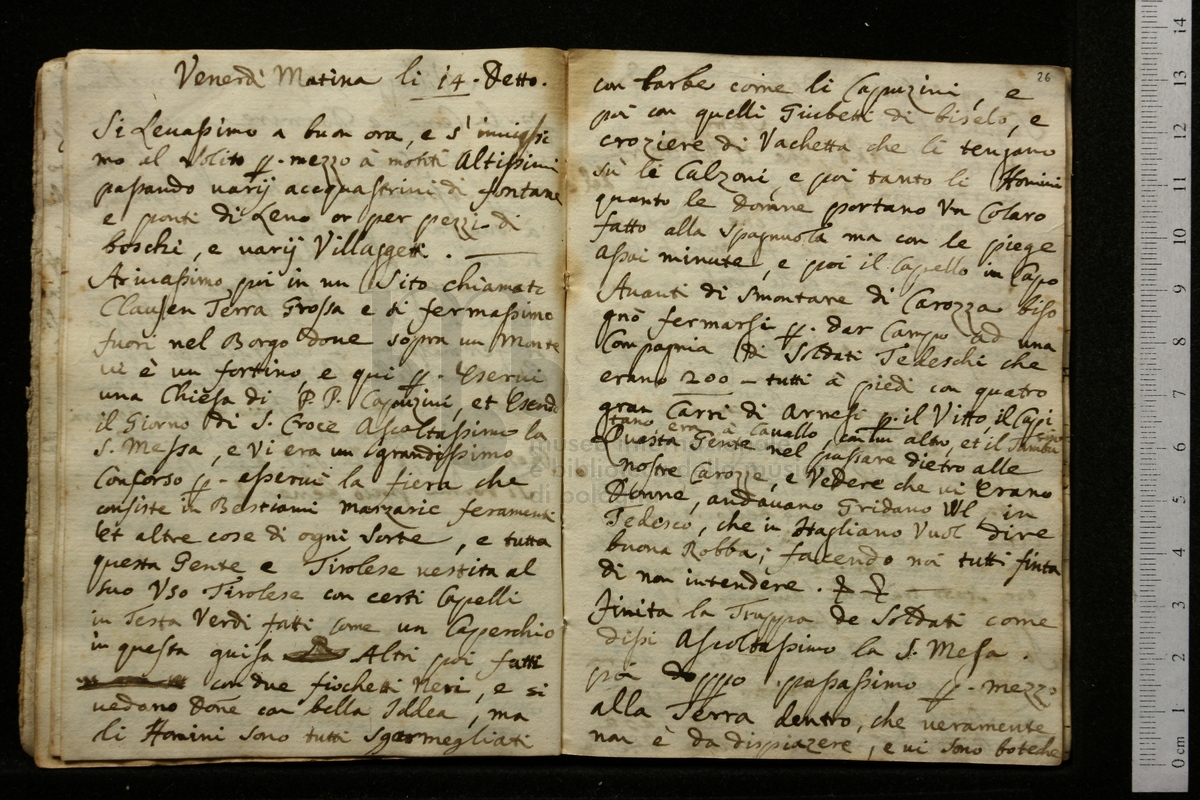 Venerdì Matina li 14. Detto.
Si Levassimo a buon ora, e s' inviassi
mo al solito p. mezzo à monti Altissimi
passando varij acequastrini di fontane
e ponti di Leno or per pezzi di
boschi, e varij Villaggetti.
Arivassimo poi in un Sito chiamato
Clausen Terra Grossa e si fermassimo
fuori nel Borgo dove sopra un Monte
vi è un fortino, e qui p. Eservi
una Chiesa di P.P. Capuzini, et Esendo
il Giorno di S. Croce Ascoltassimo la
S. Messa, e vi era un grandissimo
Concorso p. esservi la fiera che
consiste in Bestiami Marzarie feramenti
et altre cose di ogni sorte, e tutta
questa Gente e Tirolese vestita al
suo Uso Tirolese con certi Capelli
in Testa Verdi fatti come un Caperchio
in questa guisa Altri poi fatti
con due fiochetti Neri, e si
vedano Done con bella Iddea, ma
li Homini sono tutti sgarmegliati
26
con barbe come li Capuzini, e
poi con quelli Giubetti di biselo, e
croziere di Vachetta che li tengano
sù le Calzoni, e poi tanto li Homini
quanto le Donne portano Un Colaro
fatto alla Spagnuola ma con le piege
assai minute, e poi il Capello in Capo
Avanti di smontare di Carozza biso
gnò fermarsi p. dar Campo ad una
Compagnia di Soldati Tedeschi che
erano 200 – tutti à piedi con quatro
gran Carri di Arnesi p. il Vitto, il Capi
tano era à Cavallo, con un altro, et il Tambu
Questa Gente nel passare dietro alle
nostre Carozze, e Vedere che vi Erano
Donne, andavano Gridano Wl in
Tedesco, che in Itagliano Vuol dire
buona Robba; facendo noi tutti finta
di non intendere.
Finita la Truppa de Soldati come
dissi Ascoltassimo la S. Messa.
poi doppo passassimo p. mezzo
alla Terra dentro, che veramente
non è da dispiazere, e vi sono boteche
museo internazionale
e biblioteca della musica
di bologna
0 cm 1 2 3 4 5 6 7 8 9 10 11 12 13 14